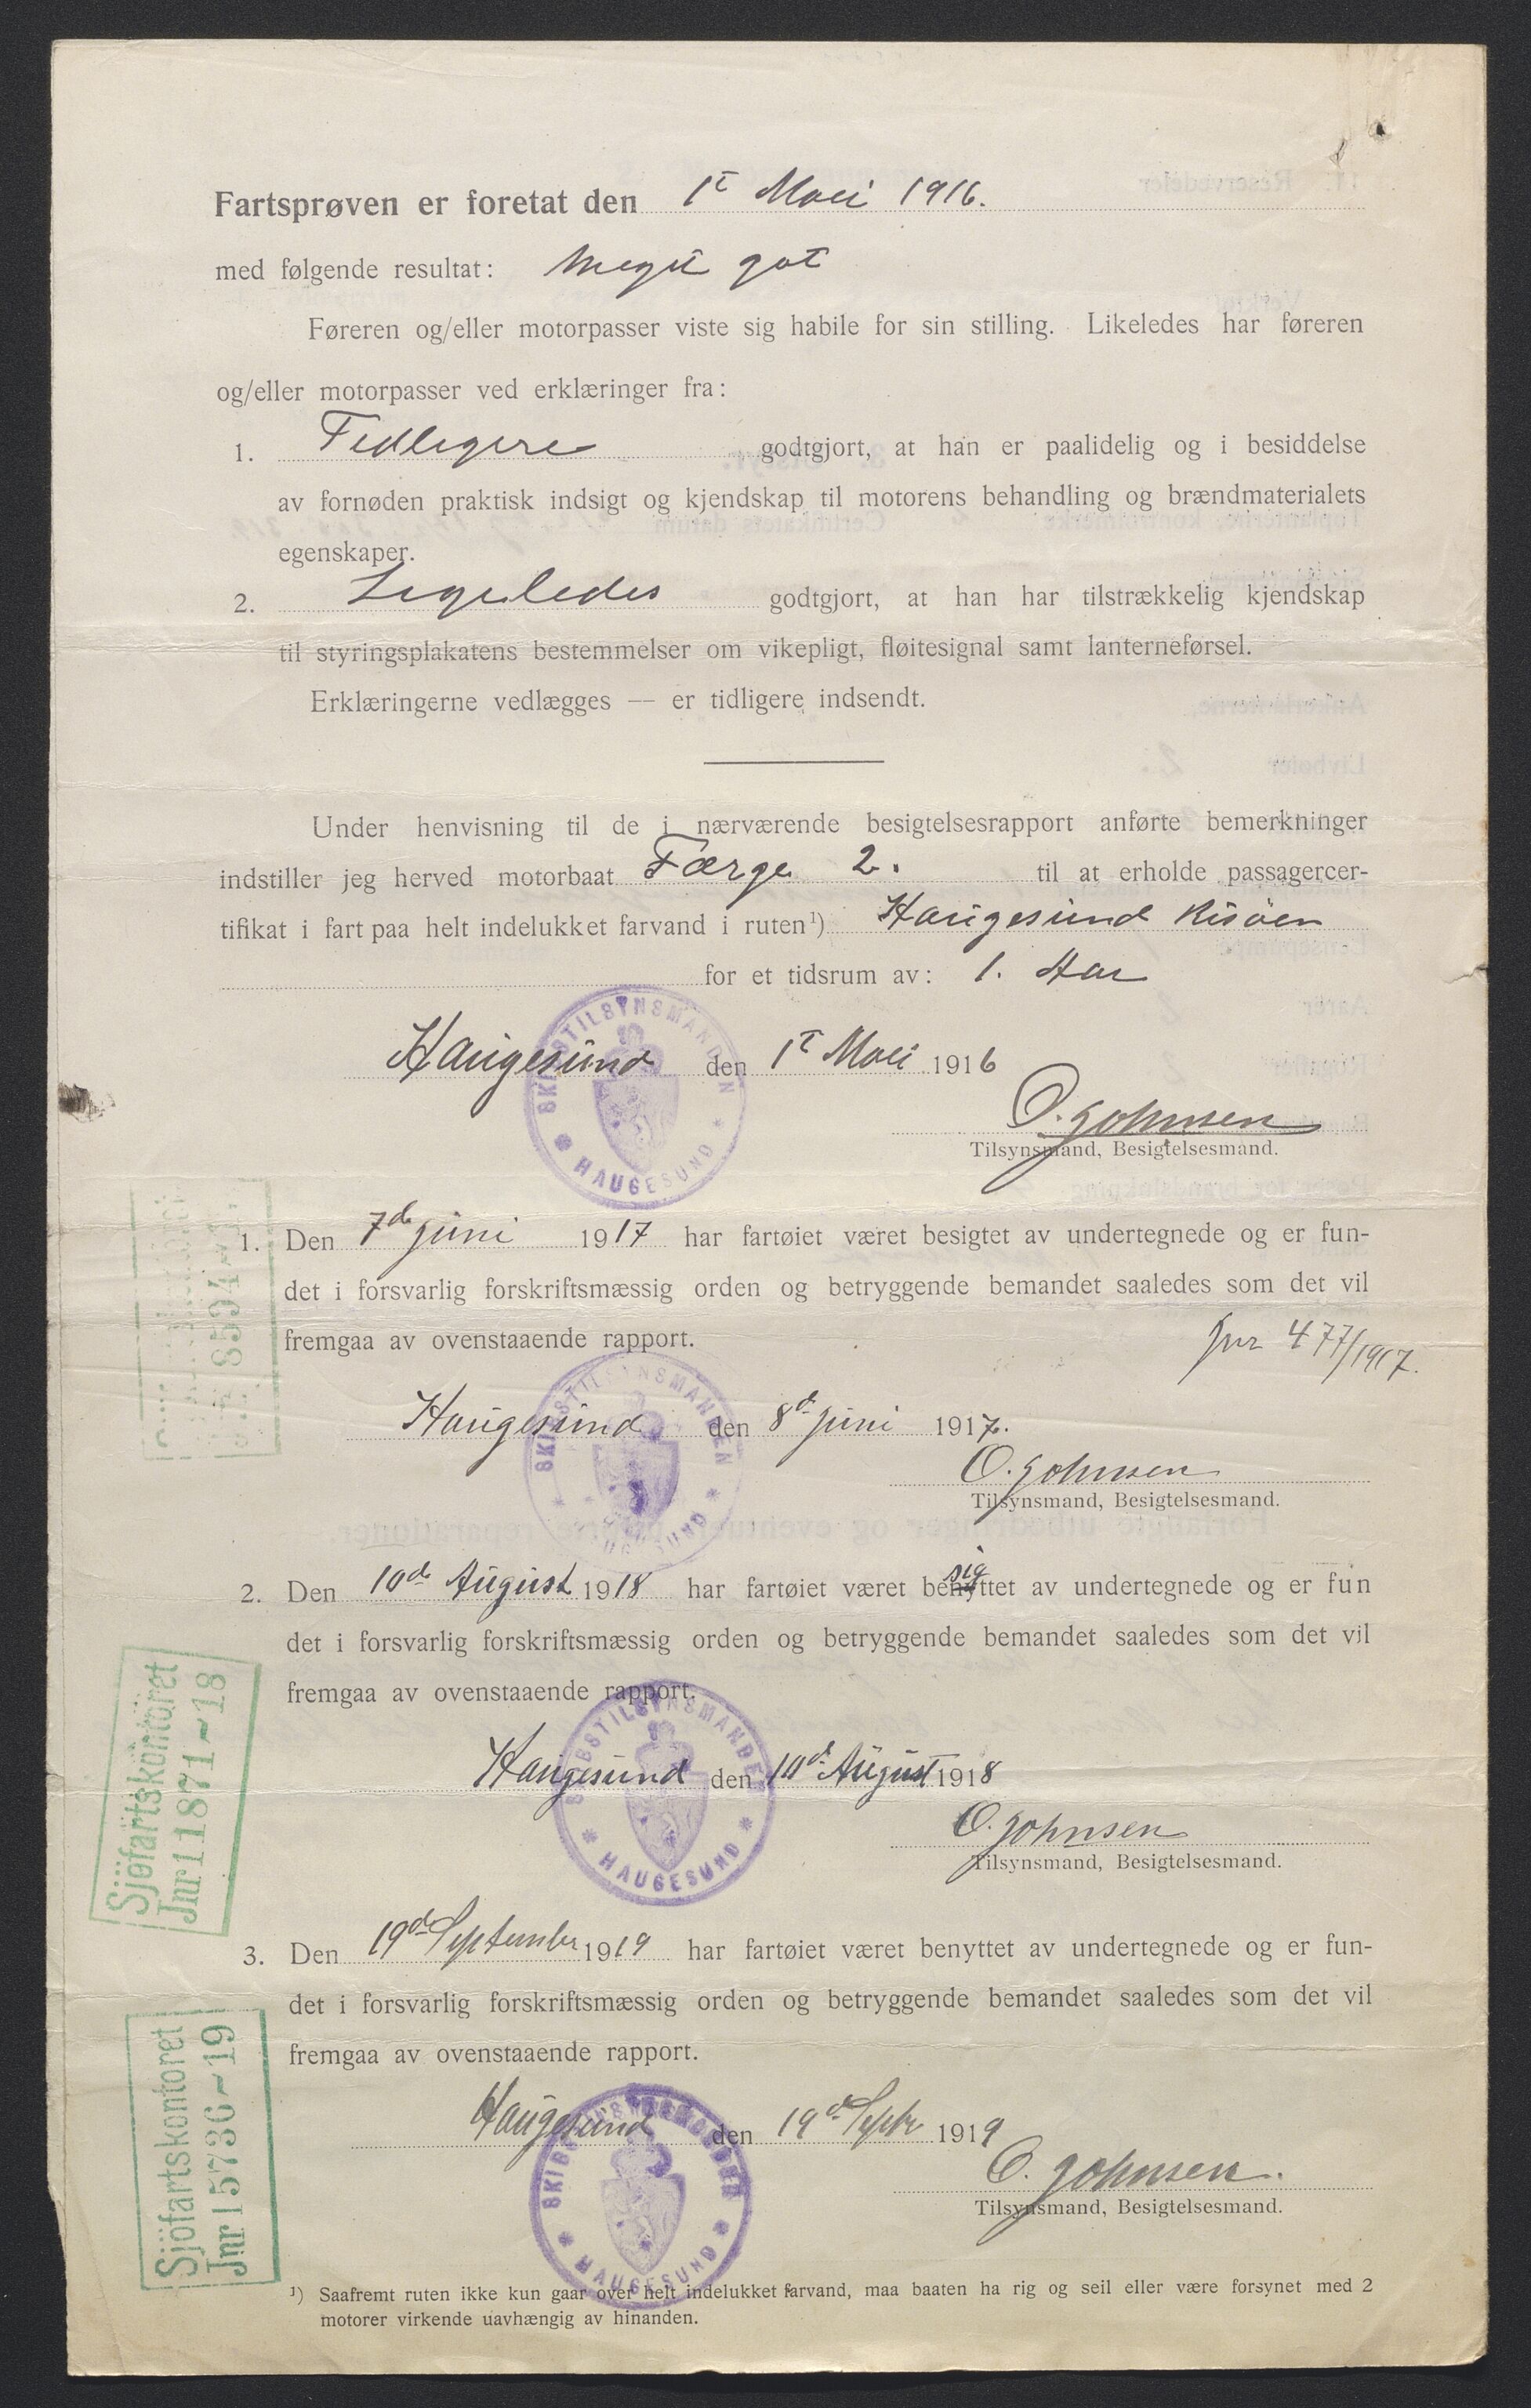 Fartsprøven er foretat den 1t Mai 1916.
med følgende resultat: Meget got
Føreren og/eller motorpasser viste sig habile for sin stilling. Likeledes har føreren
og/eller motorpasser ved erklæringer fra:
1. Tidligere godtgjort, at han er paalidelig og i besiddelse
av fornøden praktisk indsigt og kjendskap til motorens behandling og brændmaterialets
egenskaper.
2. Ligeledes godtgjort, at han har tilstrækkelig kjendskap
til styringsplakatens bestemmelser om vikepligt, fløitesignal samt lanterneførsel.
Erklæringerne vedlægges — er tidligere indsendt.
Under henvisning til de i nærværende besigtelsesrapport anførte bemerkninger
indstiller jeg herved motorbaat Færge 2. til at erholde passagercer-
tifikat i fart paa helt indelukket farvand i ruten¹) Haugesund Risöen
for et tidsrum av: 1. Aar
Haugesund den 1t Mai 1916
SKIBSTILSYNSMANDEN * HAUGESUND *
O. Johnsen
Tilsynsmand, Besigtelsesmand.
1. Den 7de juni 1917 har fartøiet været besigtet av undertegnede og er fun-
det i forsvarlig forskriftsmæssig orden og betryggende bemandet saaledes som det vil
fremgaa av ovenstaaende rapport.
Jnr 477/1917.
Haugesund den 8d juni 1917.
SKIBSTILSYNSMANDEN * HAUGESUND *
O. Johnsen
Tilsynsmand, Besigtelsesmand.
2. Den 10de August 1918 har fartøiet været benyttet av undertegnede og er fun
sig
det i forsvarlig forskriftsmæssig orden og betryggende bemandet saaledes som det vil
fremgaa av ovenstaaende rapport.
Sjöfartskontoret
Jnr 11871-18
Haugesund den 10d August 1918
SKIBSTILSYNSMANDEN * HAUGESUND *
O. Johnsen
Tilsynsmand, Besigtelsesmand.
3. Den 19de September 1919 har fartøiet været benyttet av undertegnede og er fun-
det i forsvarlig forskriftsmæssig orden og betryggende bemandet saaledes som det vil
fremgaa av ovenstaaende rapport.
Sjöfartskontoret
Jnr 15736-19
Haugesund den 19d Septbr 1919
SKIBSTILSYNSMANDEN * HAUGESUND *
O. Johnsen.
Tilsynsmand, Besigtelsesmand.
¹) Saafremt ruten ikke kun gaar over helt indelukket farvand, maa baaten ha rig og seil eller være forsynet med 2
motorer virkende uavhængig av hinanden.